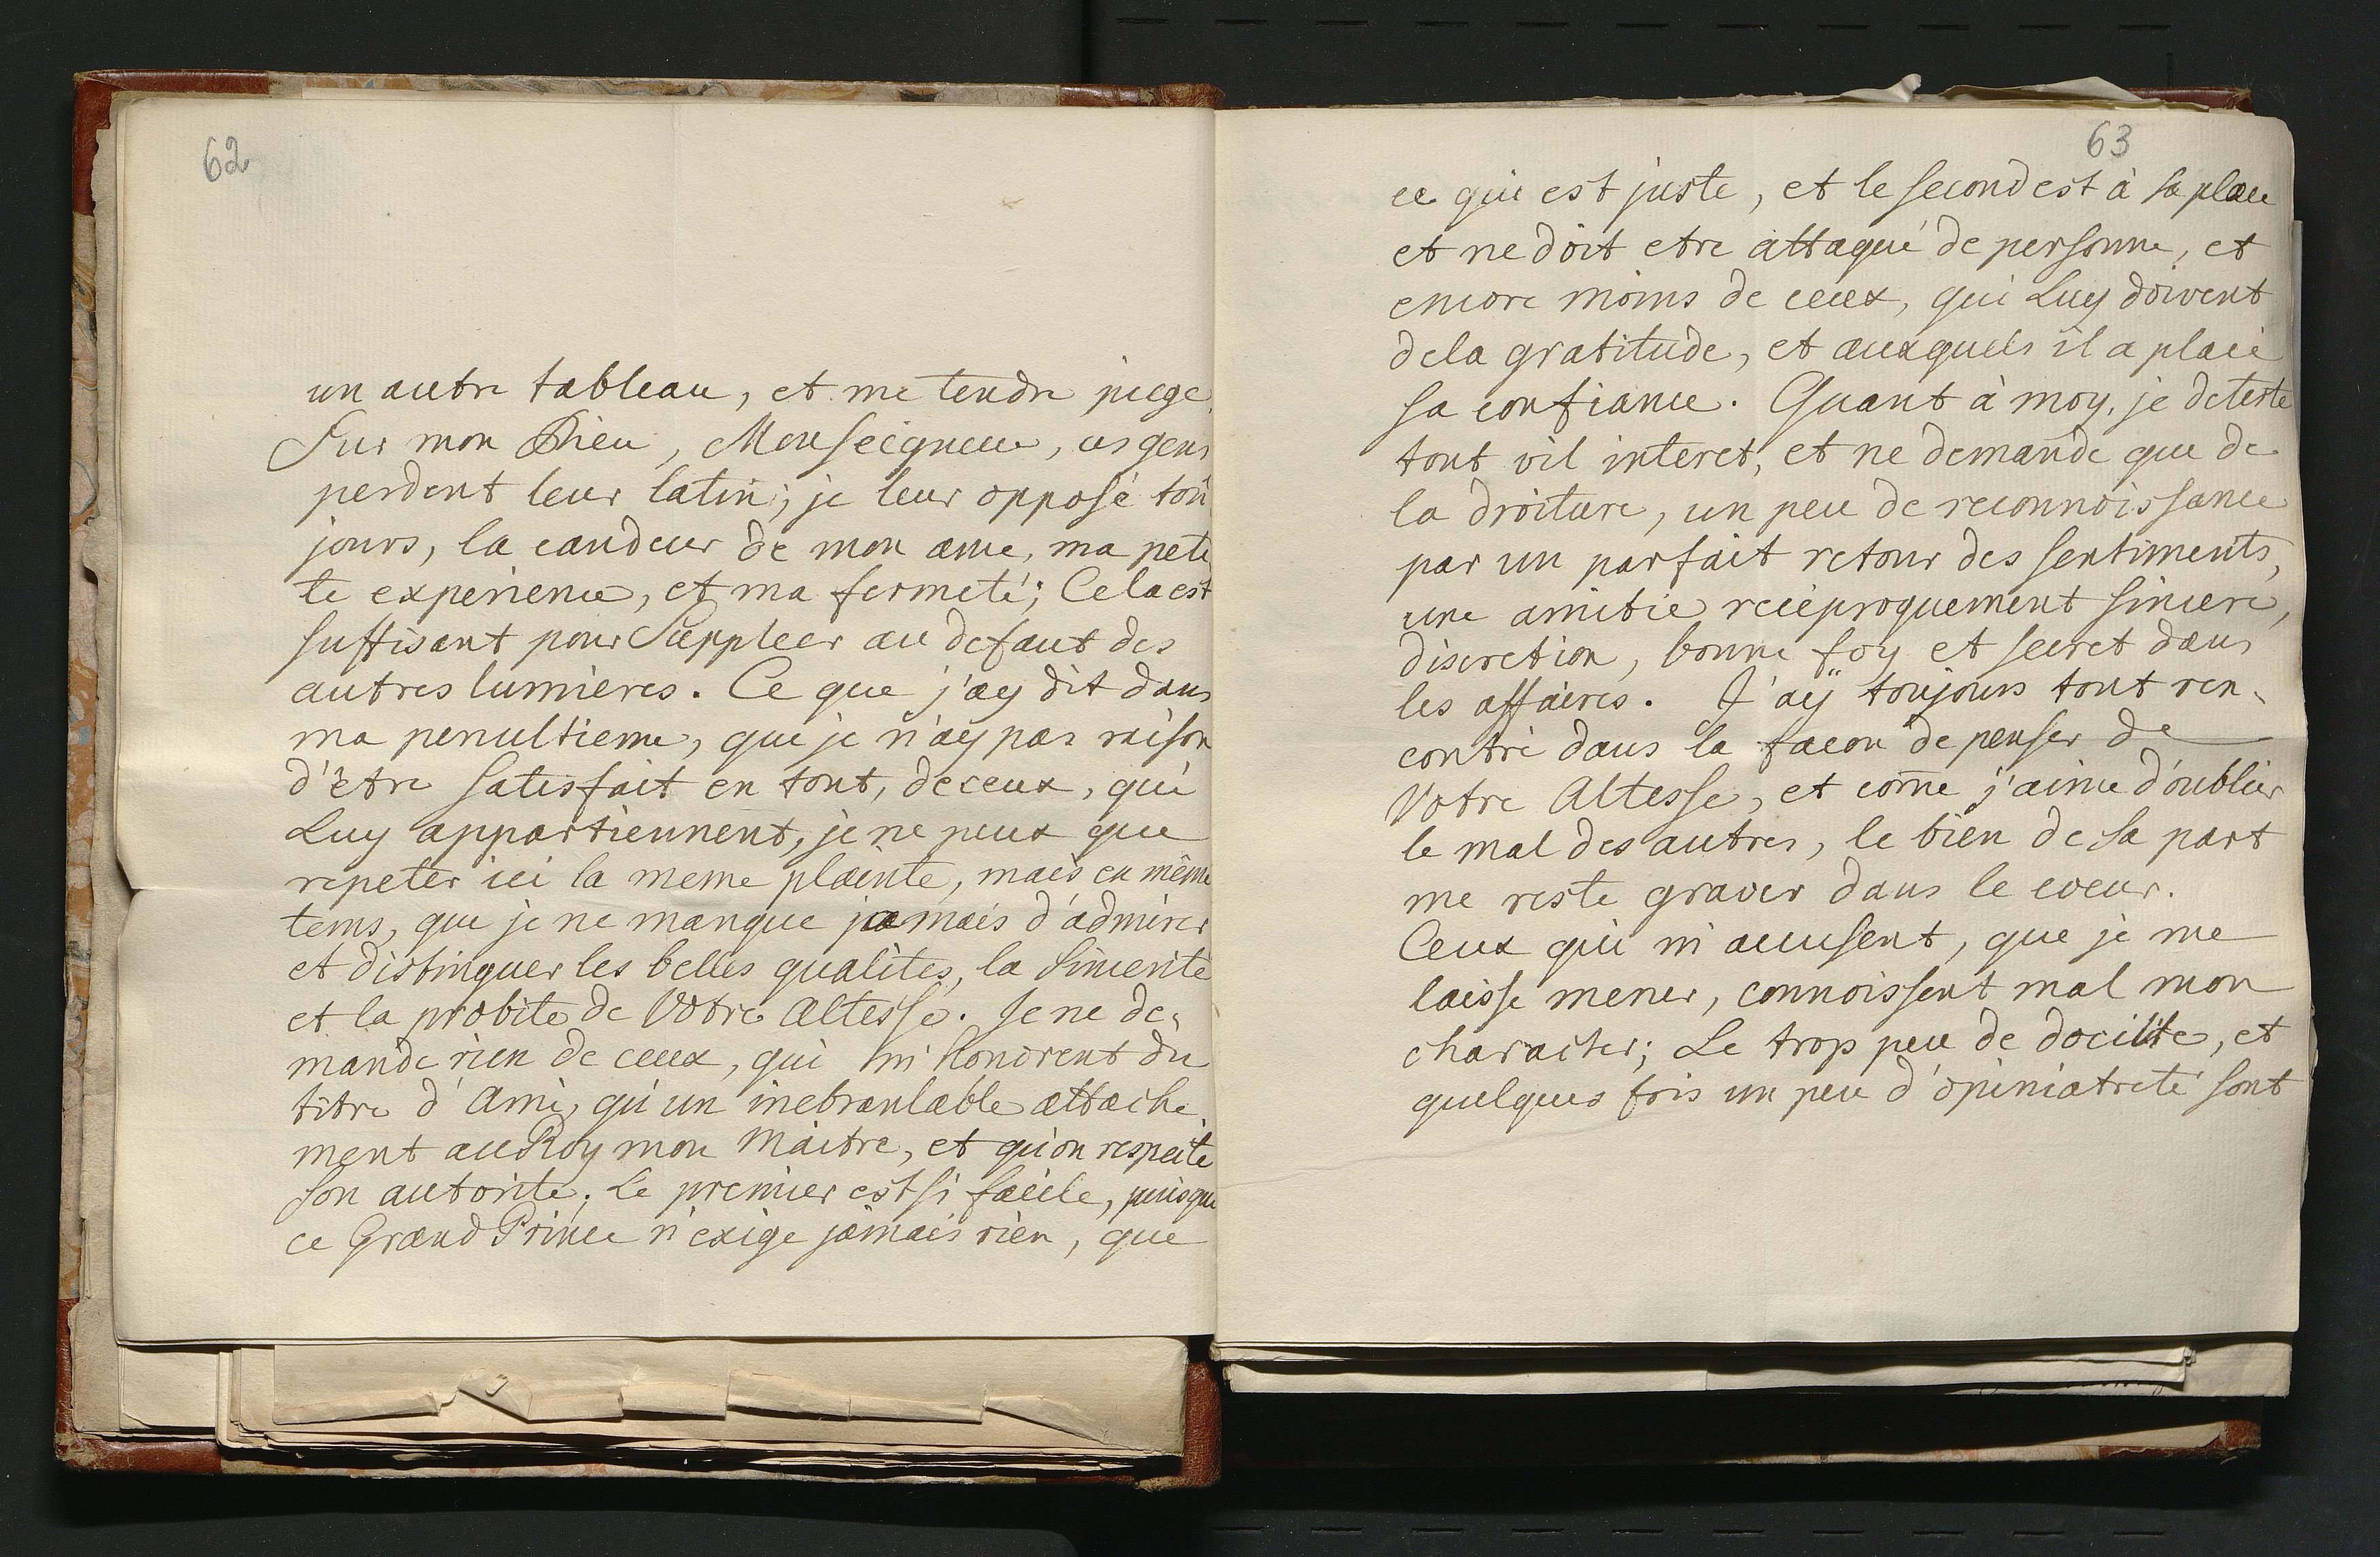 62
un autre tableau, et me tendre piege.
Sur mon Dieu, Monseigneur, ces gens
perdent leur latin; je leur oppose tou
jours, la candeur de mon ame, ma peti
te experience, et ma fermeté; Cela est
suffisant pour Suppleer au defaut des
autres lumieres. Ce que j'ay dit dans
ma penultieme, que je n'ay pas raison
d'être Satisfait en tout, de ceux, qui
Luy appartiennent, je ne peux que
repeter ici la meme plainte, mais en même
tems, que je ne manque jamais d'admirer
et distinguer les belles qualités, la Sincerité
et la probité de Votre Altesse. Je ne de,
mande rien de ceux, qui m'honorent du
titre d'Ami, qu'un inebranlable attache,
ment au Roy mon Maitre, et qu'on respecte
son autorité. Le premier est si facile, puisque
ce Grand Prince n'exige jamais rien, que
63
ce qui est juste, et le second est à sa place
et ne doit etre attaqué de personne, et
encore moins de ceux, qui Luy doivent
de la gratitude, et auxquels il a placé
sa confiance. Quant à moy, je deteste
tout vil interet, et ne demande que de
la droiture, un peu de reconnoissance
par un parfait retour des sentiments,
une amitie reciproquement sincere,
discretion, bonne foy et secret dans
les affaires. J'aÿ toujours tout ren,
contré dans la facon de penser de
Votre Altesse, et com̄e j'aime d'oublier
le mal des autres, le bien de Sa part
me reste graver dans le coeur.
Ceux qui m'accusent, que je me
laisse mener, connoissent mal mon
character; Le trop peu de docilite, et
quelques fois un peu d'opiniatreté sont